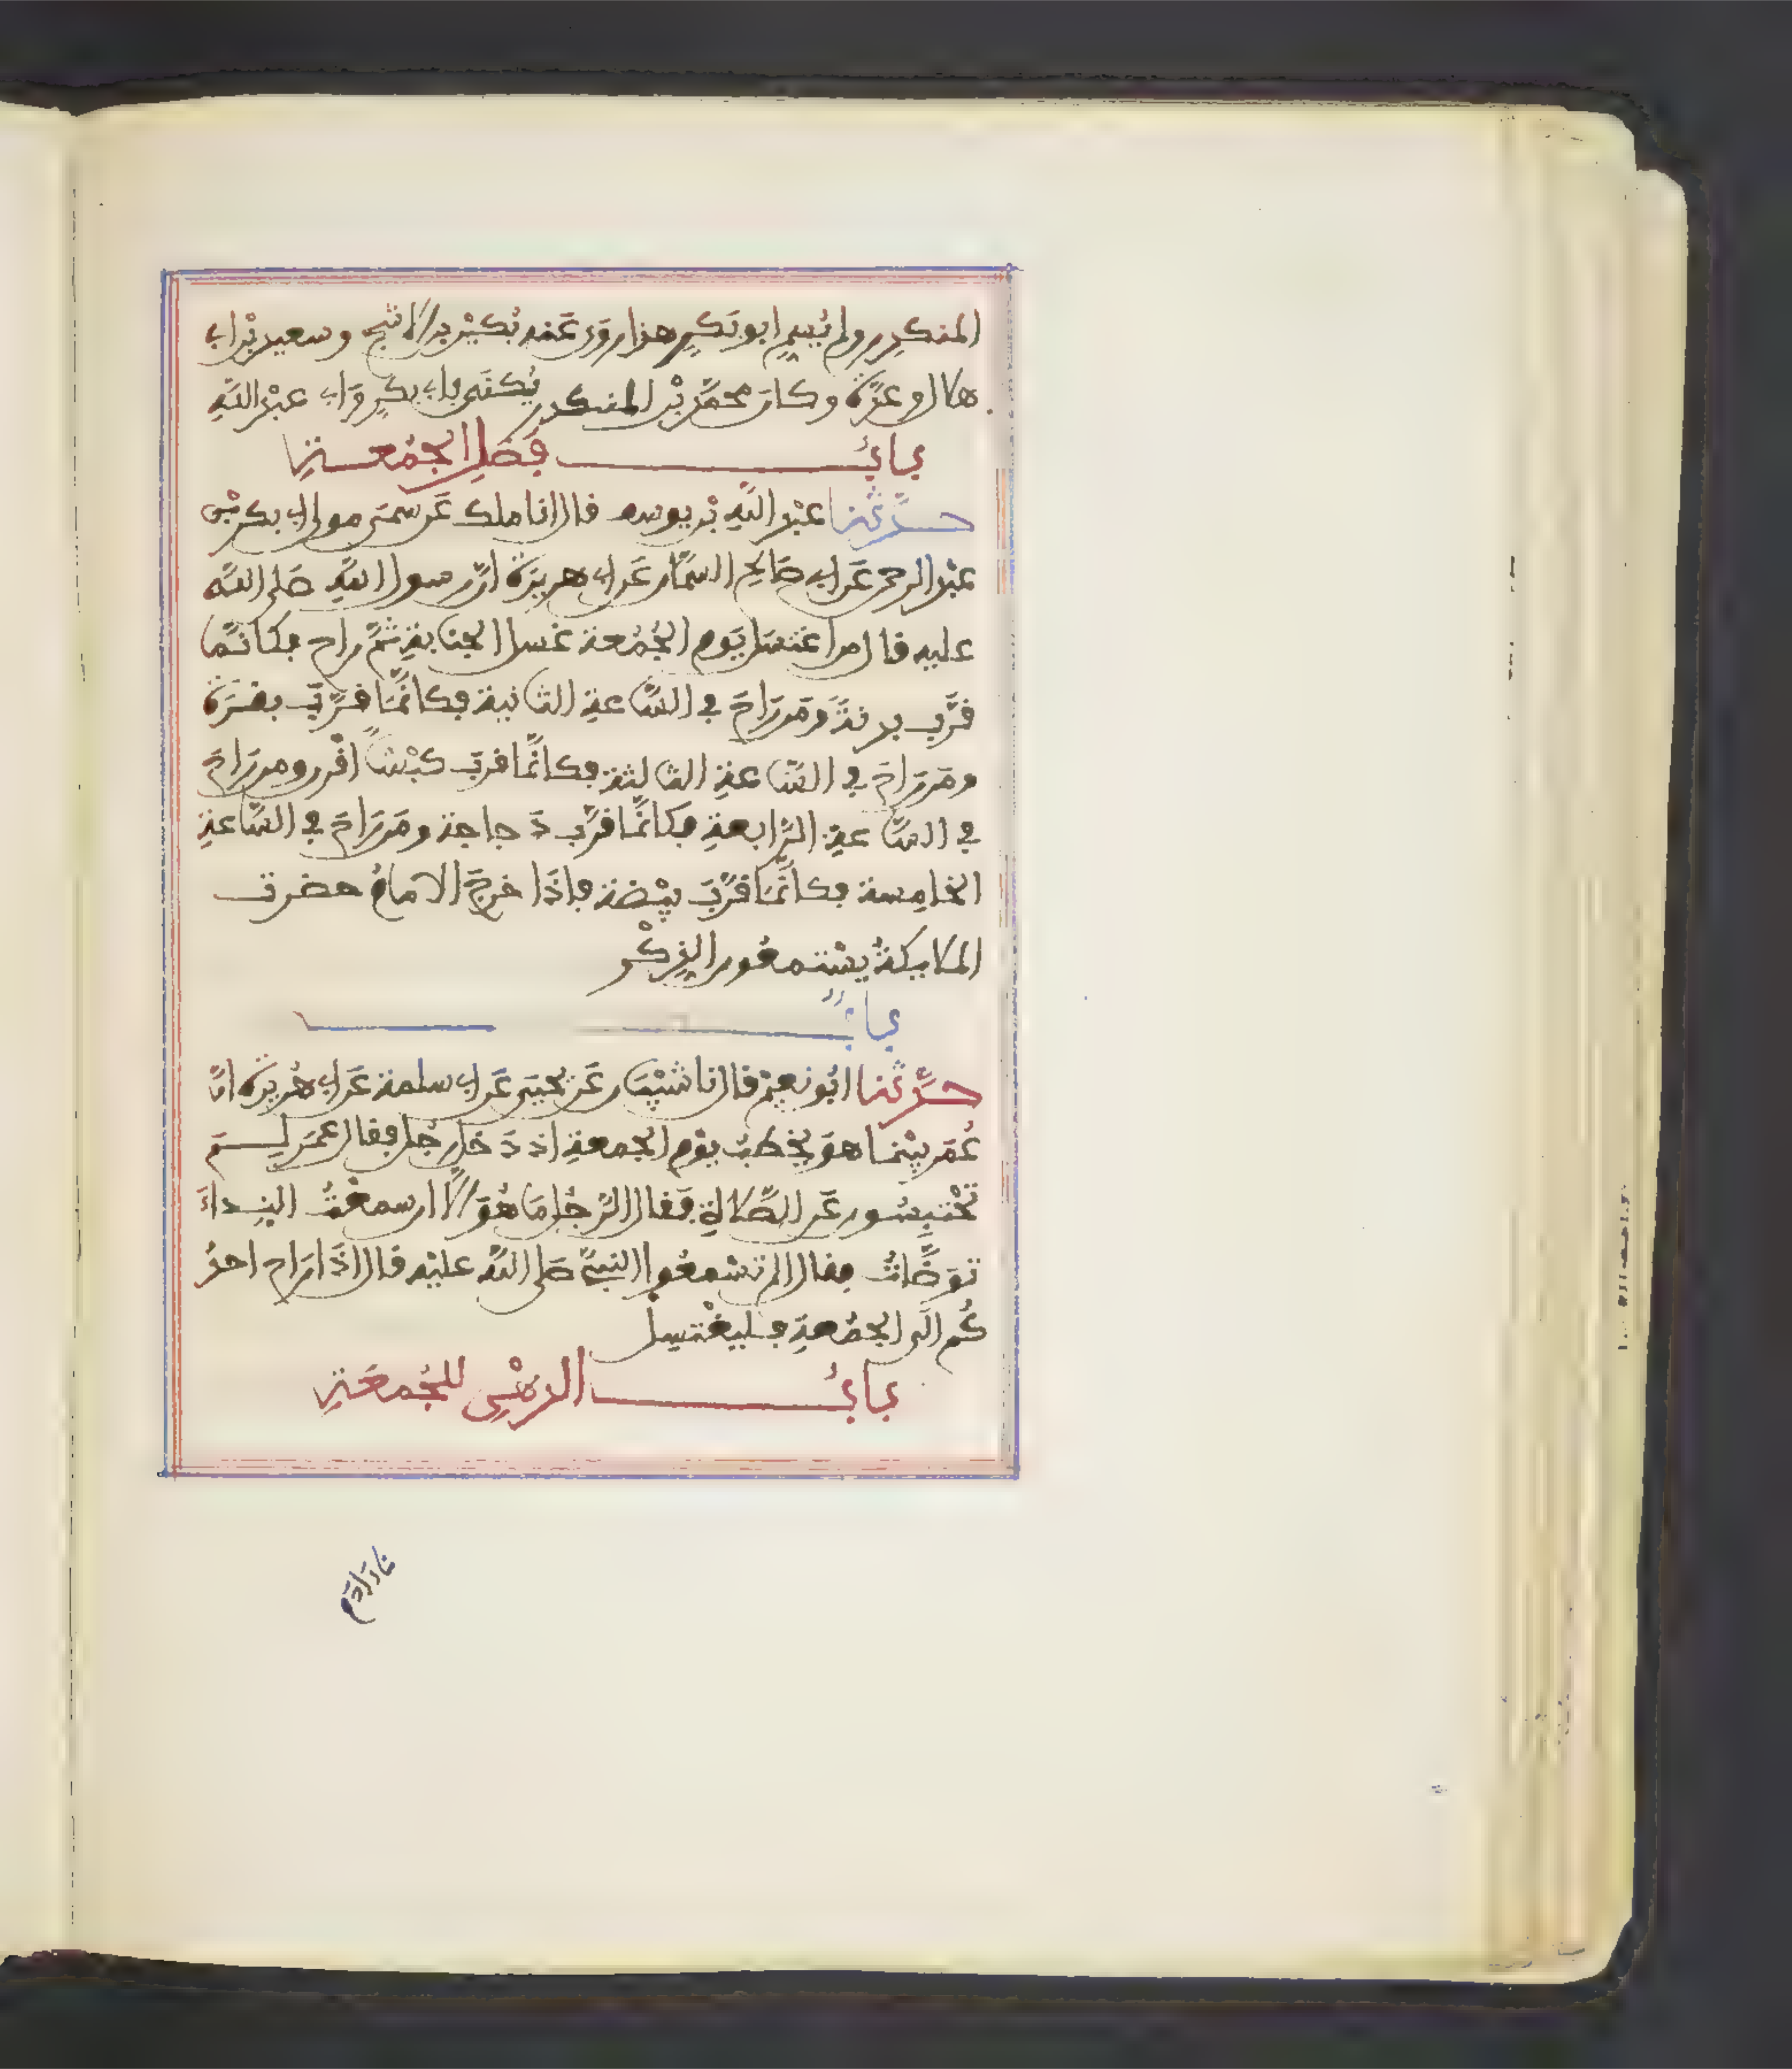 المنكدر ولم يُسم ابو بَكرٍ هذا روَى عَنه بُكَيْر بن الاشج وسعيد بْن ابي
هلال وعدَّة وكان محمَّد بْن المنكدر يُكنَى بابي بكرٍ وَابي عبْد اللَّهِ
بابُ فَضلِ الجُمُعـةِ
حدَّثنا عبْد اللَّهِ بْن يوسف قال انا ملك عَن سُمَىّ مولى ابي بكر بْن
عبْد الرحمن عَن ابي صَالحِ السَّمَّان عَن ابي هريرَة انَّ رسول اللَّهِ صَلى اللَّه
عليه قال من اغتسَل يَوم الجُمُعة غسل الجنابةِ ثمَّ راح فكانَّما
قرَّب بدنةً ومَن رَاحَ في السَّاعةِ الثانية فكانَّمَا قرَّبَ بقرَة
ومَن رَاحَ في السَّاعةِ الثالثة فكانَّمَا قربَ كبْشاً اقْرن ومن رَاحَ
في السَّاعةِ الرَّابعةِ فكانَّمَا قرَّب دَجاجة ومَن رَاحَ في السَّاعةِ
الخامِسة فكانَّمَا قرَّبَ بيْضة فاذَا خرجَ الامامُ حضرت
الملايكةُ يسْتمعُون الذِكْر
بابٌ
حدَّثنا ابُو نعيْم قال نا شيْبَان عَن يحيَى عَن ابي سلمة عَن ابي هُريرَة انَّ
عُمَر بيْنما هوَ يخْطبُ يوْم الجمعةِ اذ دَخل رجُل فقال عمَر لِـمَ
تحْتبِسُون عَن الصَّلاةِ فقال الرَّجُل مَا هُوَ الَّا ان سمعْتُ النِداءَ
توَضَّاتُ فقال الم تسْمعُوا النبيَّ صَلى اللَّه عليْه قال اذَا رَاح احدُ
كُم الَى الجُمُعةِ فليغْتسِل
بابُ الدهْنِ للجُمعَةِ
نا ادَمُ